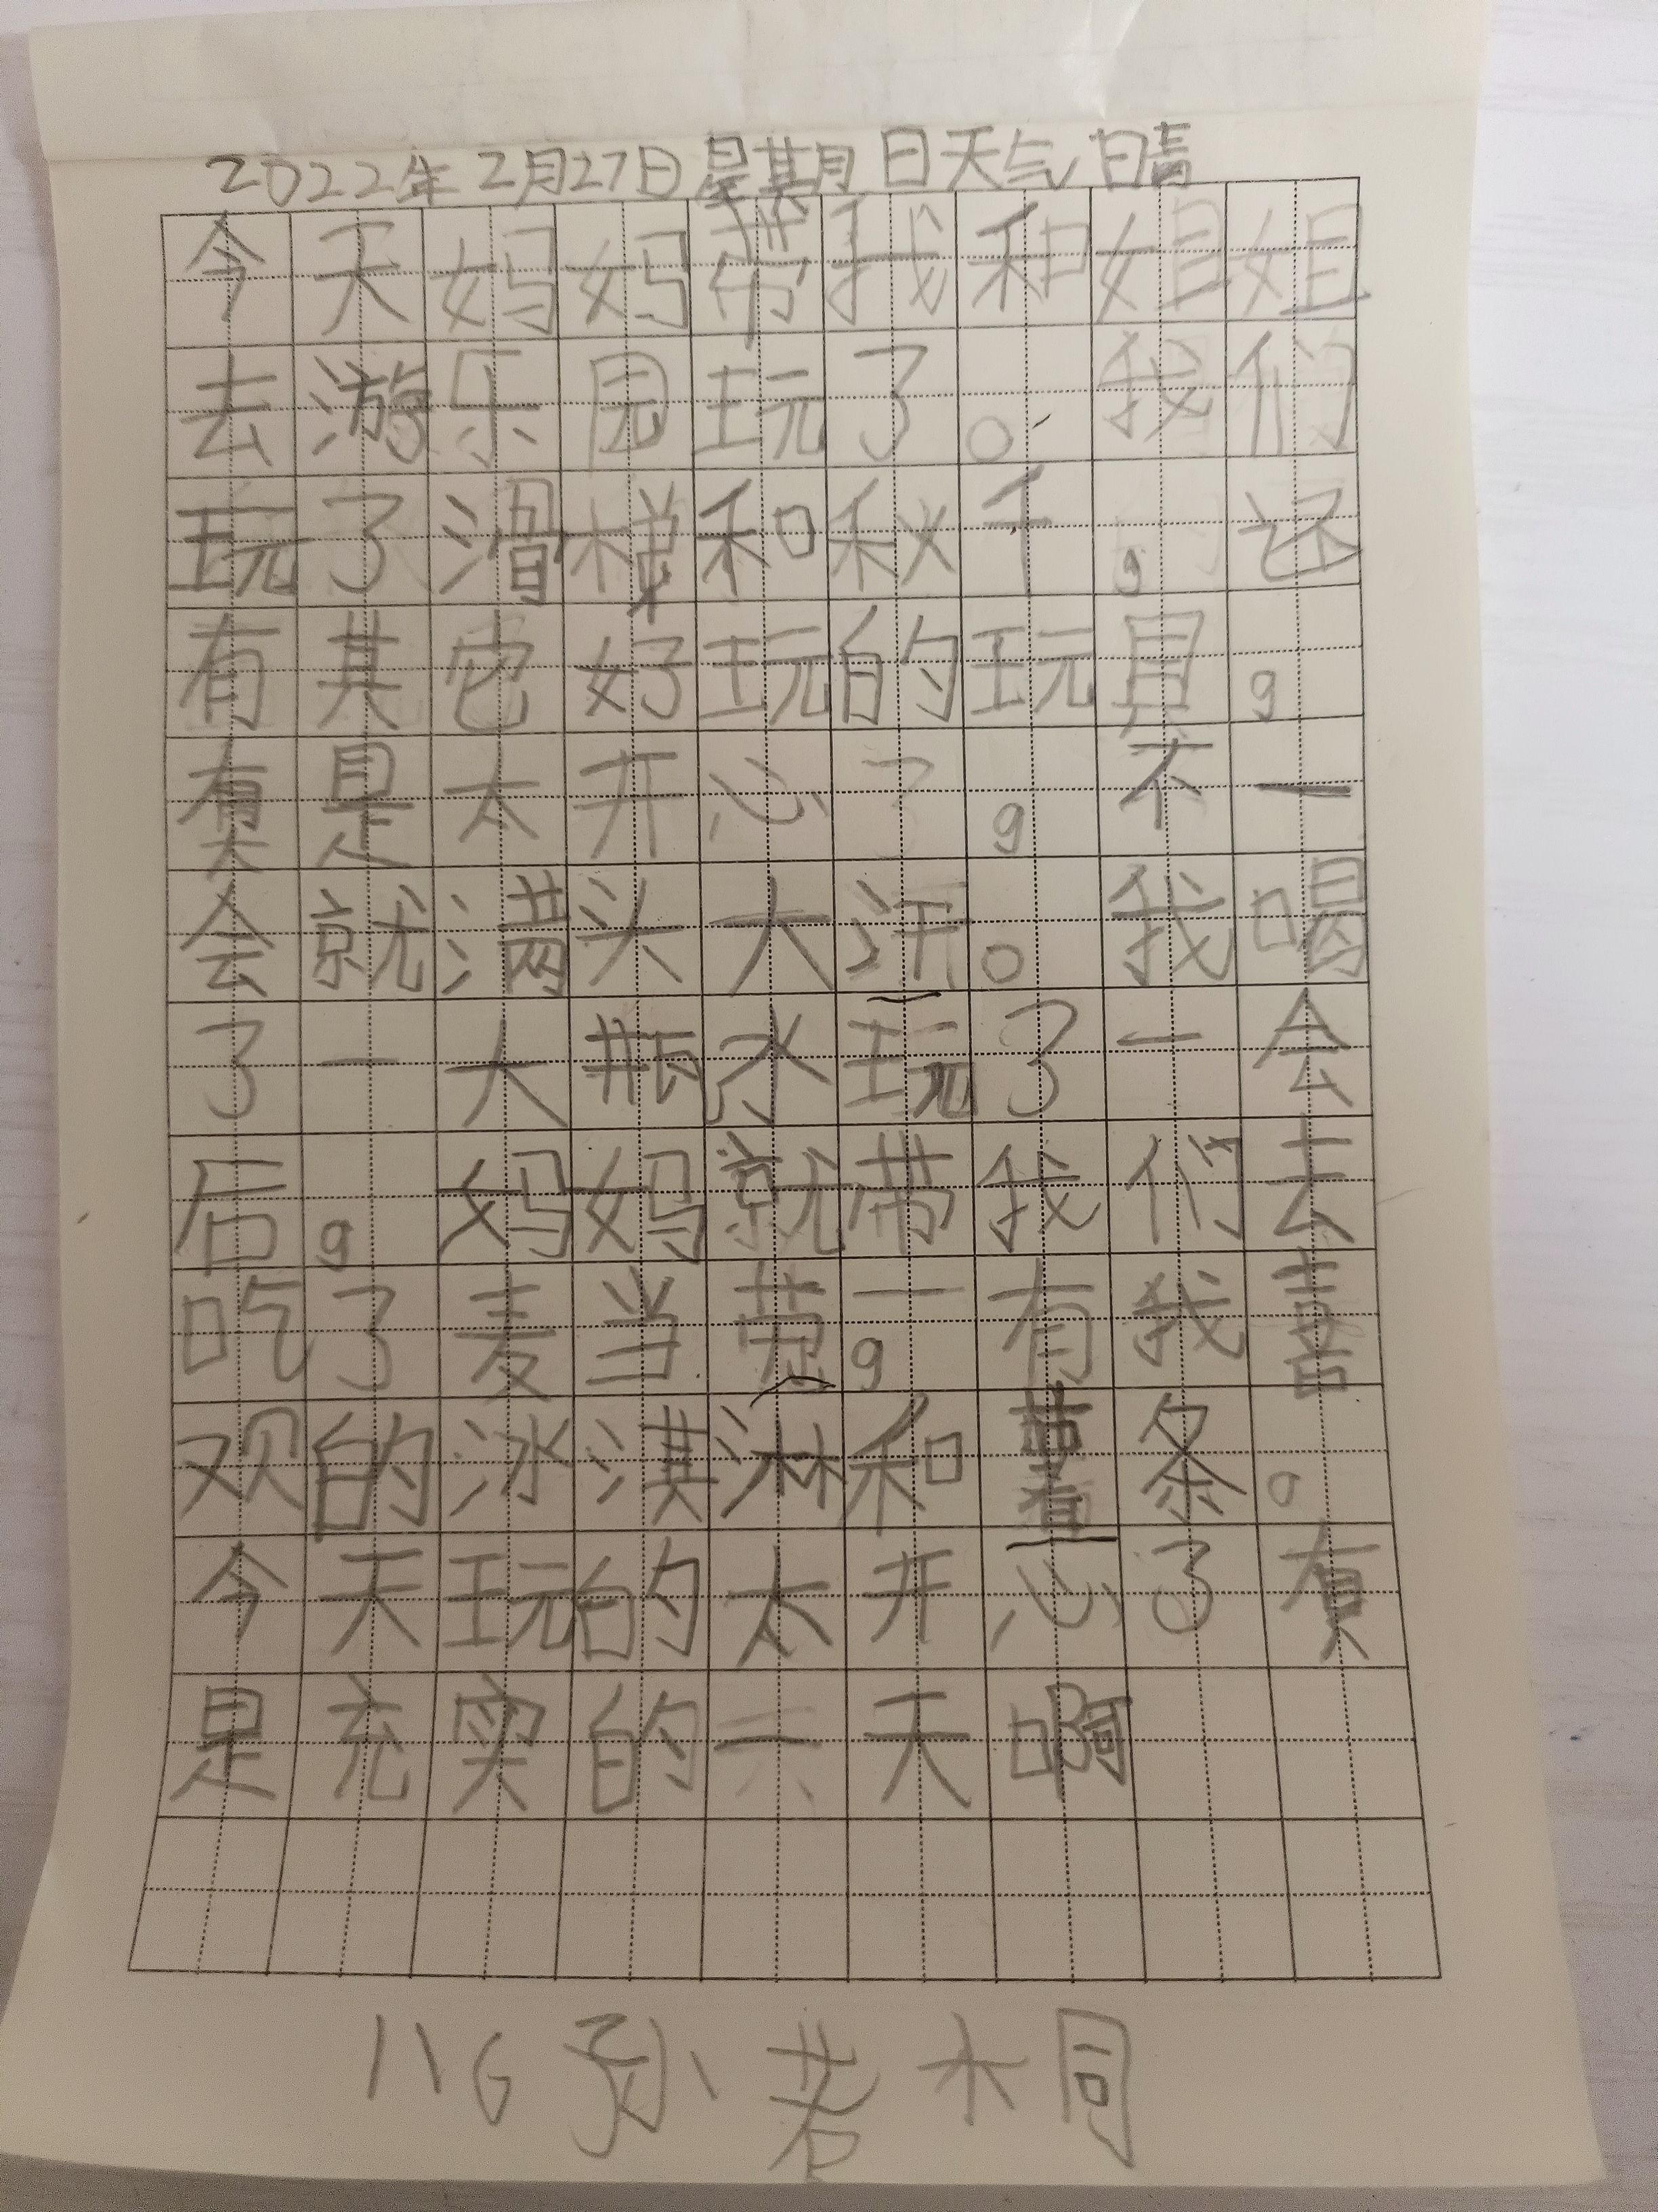 2022年2月27日星期日天气晴
今天妈妈带我和姐姐
去游乐园玩了。我们
玩了滑梯和秋千,还
有其它好玩的玩具,
真是太开心了,不一
会就满头大汗。我喝
了一大瓶水玩了一会
后,妈妈就带我们去
吃了麦当劳,有我喜
欢的冰淇淋和薯条。
今天玩的太开心了真
是充实的一天啊
116孙若桐